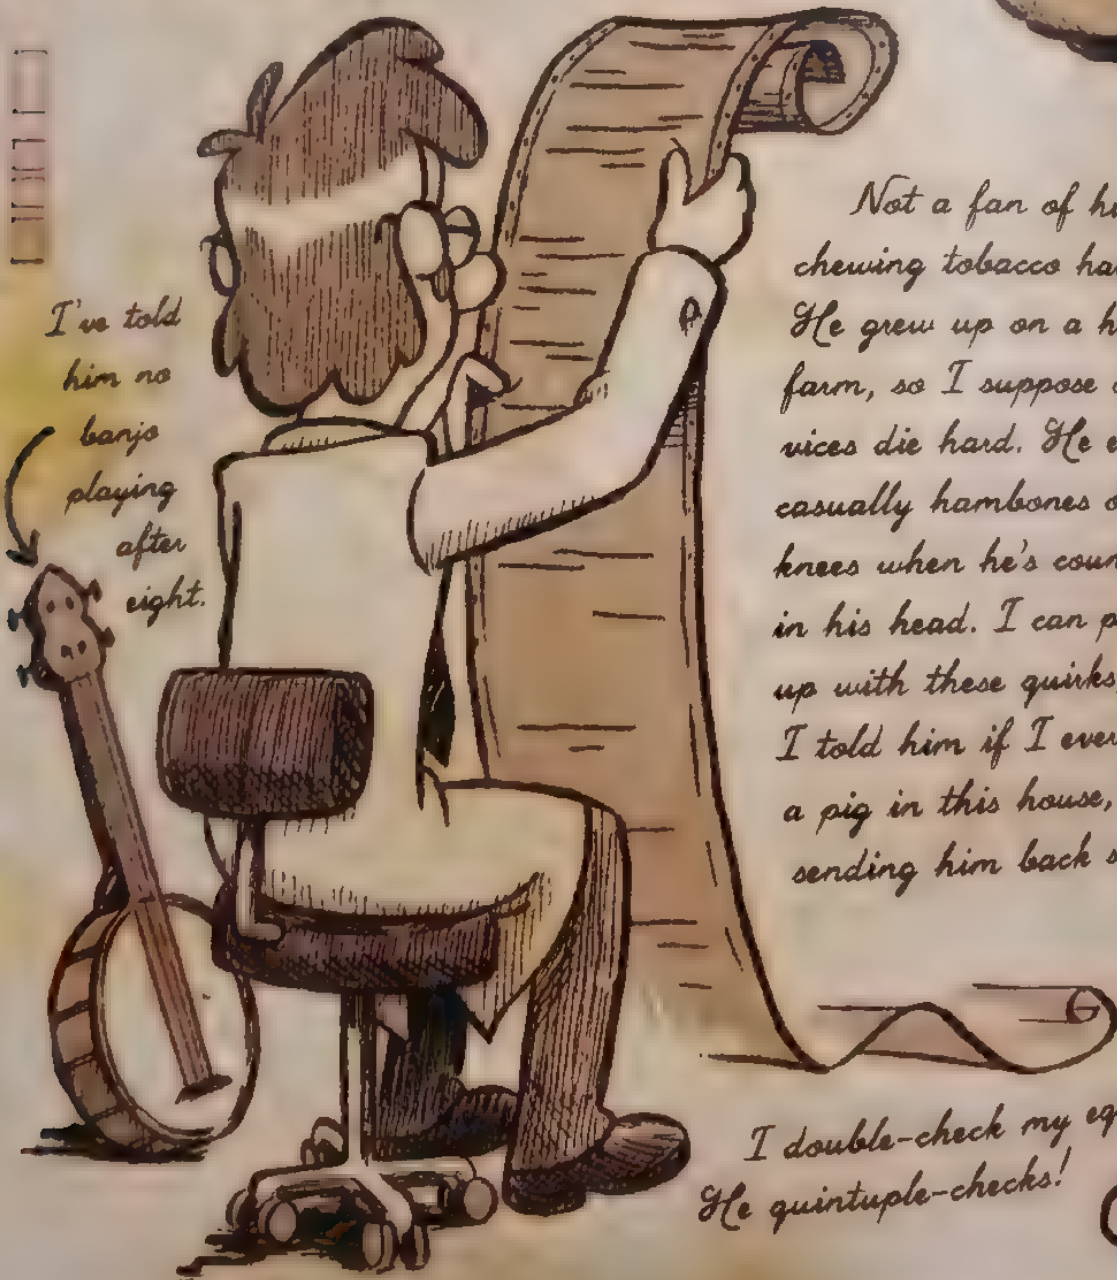 I've told
him no
banjo
playing
after
eight.
Not a fan of
chewing tobacco
He grew up on a
farm, so I suppose
vices die hard. He
casually hambones
knees when he's
in his head. I can
up with these quirks
I told him if I ever
a pig in this house,
sending him back
I double-check my
He quintuple-checks!